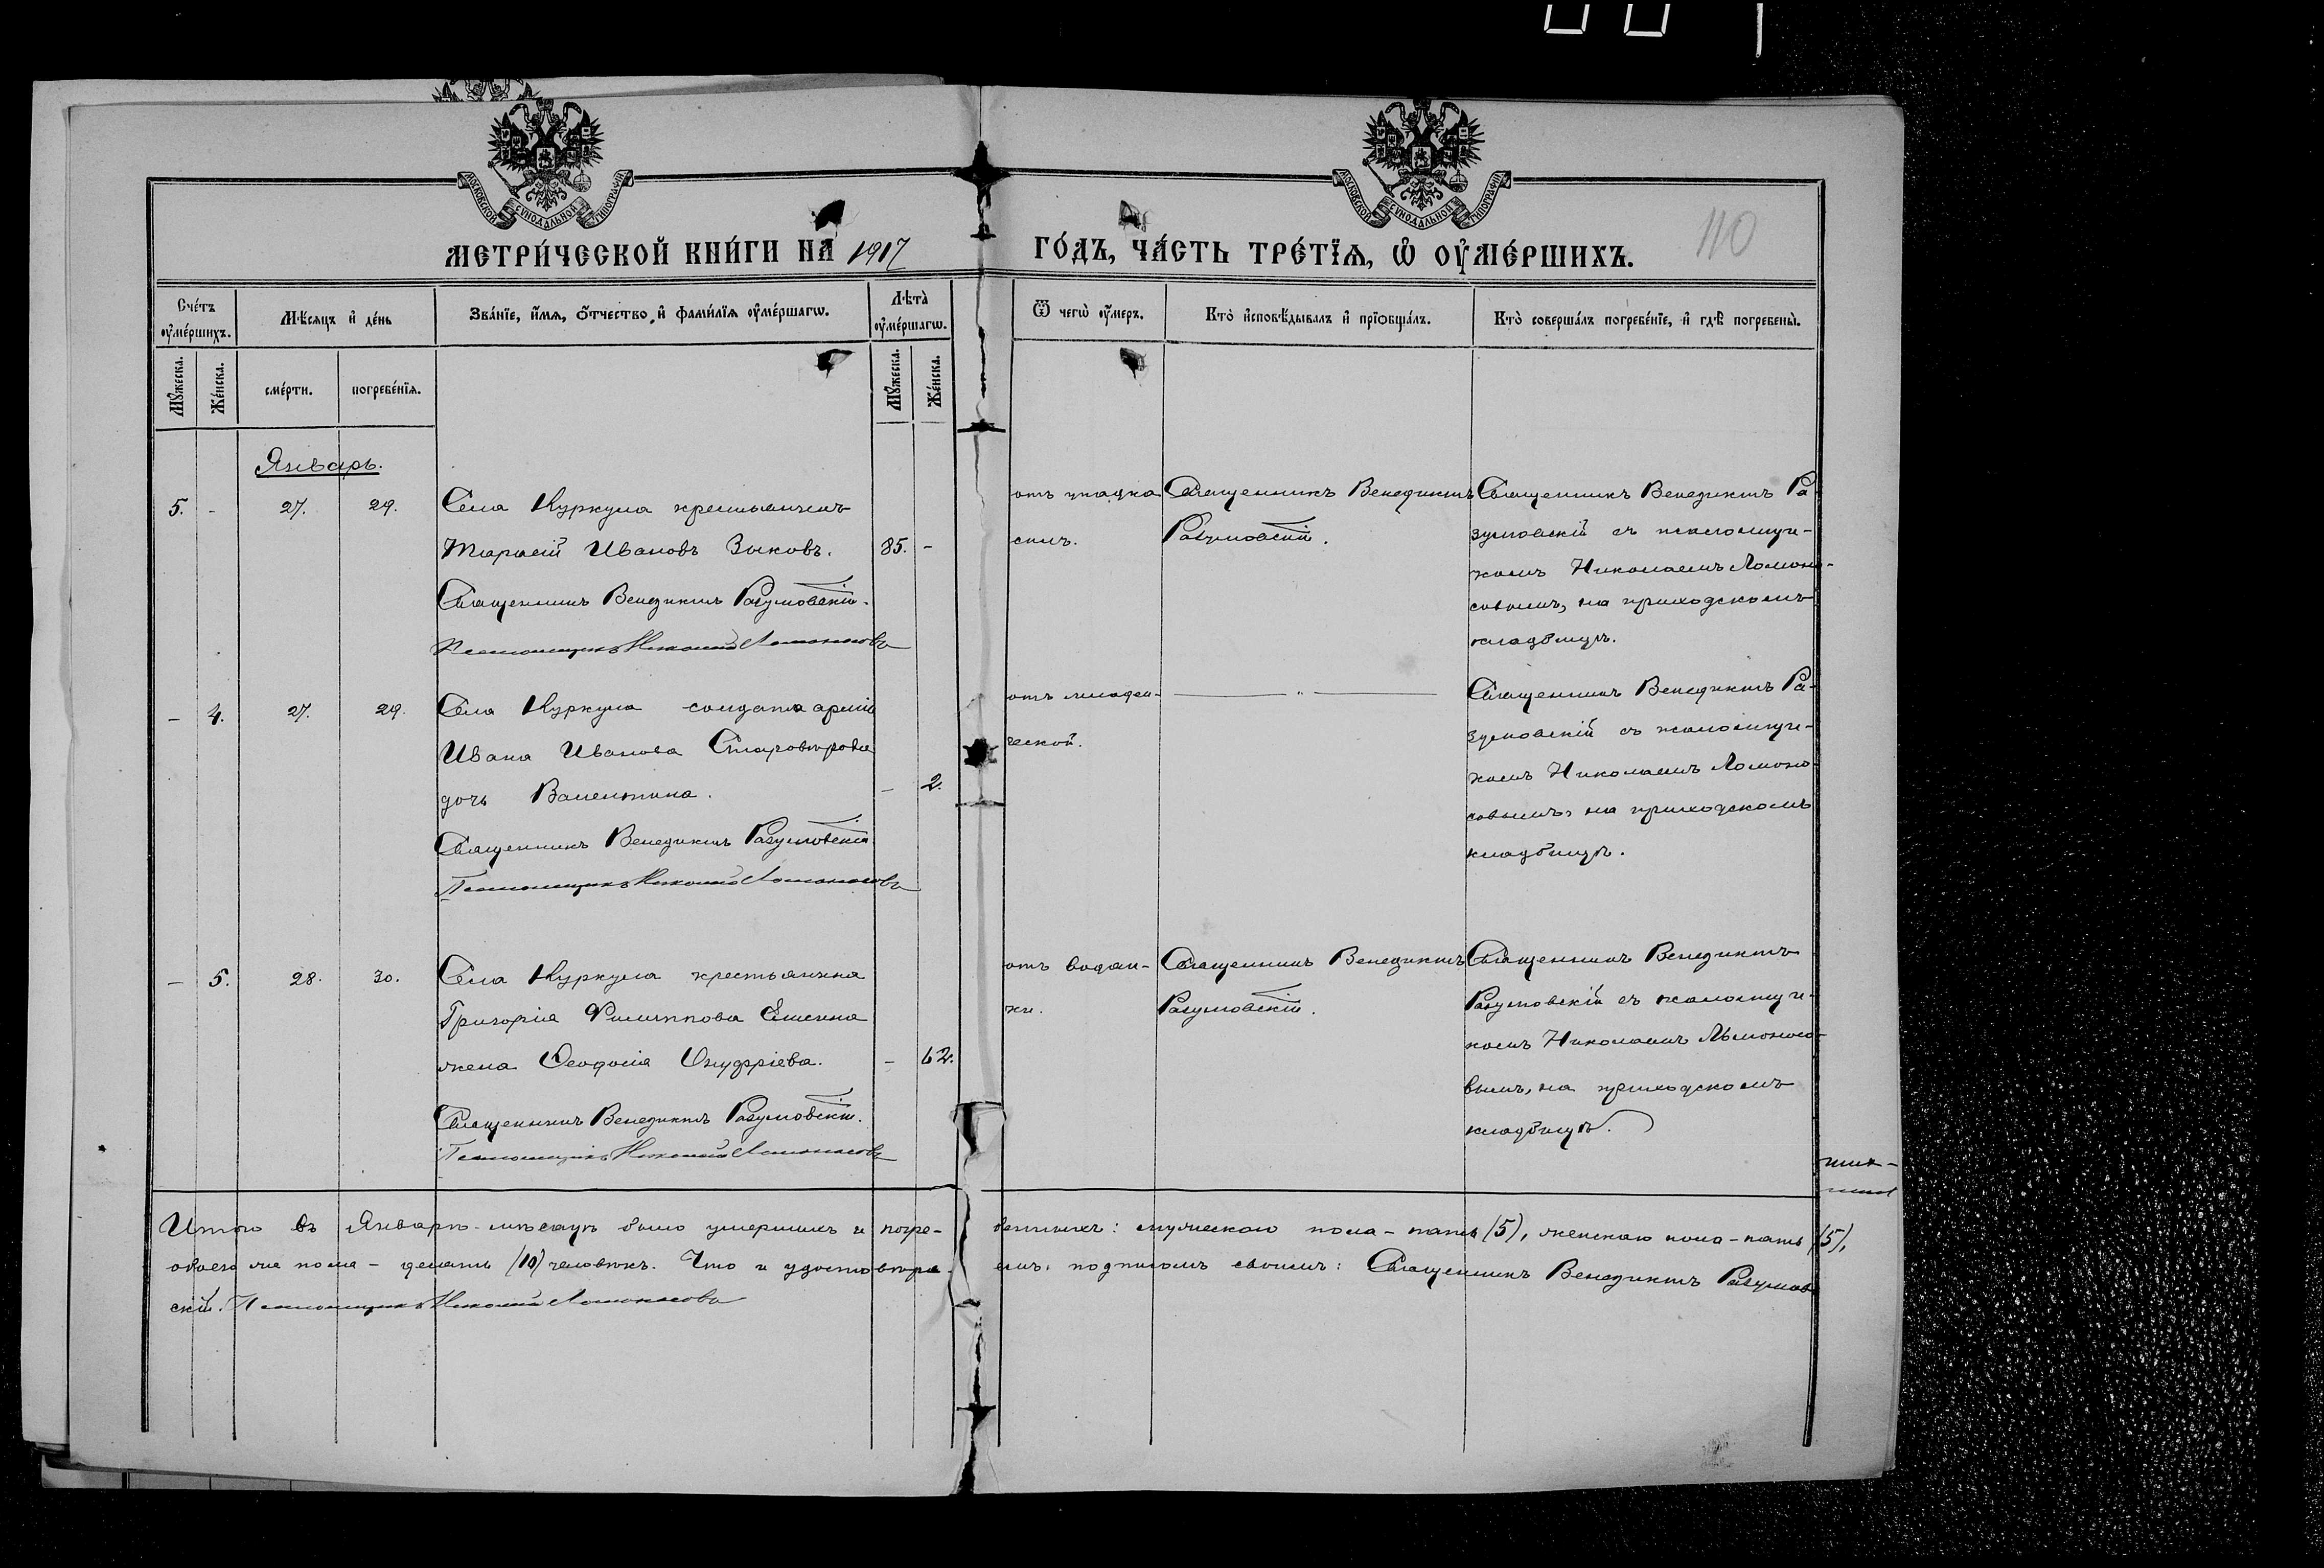 МОСКОВСКОЙ СУНОДАЛЬНОЙ ТИПОГРАФІИ
МОСКОВСКОЙ СУНОДАЛЬНОЙ ТИПОГРАФІИ
110
МЕТРИ́ЧЕСКОЙ КНИ́ГИ НА 1917 ГО́ДЪ, ЧА́СТЬ ТРЕ́ТЇѦ, Ѡ ОУ҆МЕ́РШИХЪ.
Сче́тъ оу҆ме́ршихъ.
Мꙋ́жеска.
Же́нска.
Мѣ́сяцъ и҆ де́нь
сме́рти.
погребе́нїѧ.
Зва́нїе, и҆́мѧ, ѻ҆́тчество, и҆ фами́лїѧ оу҆ме́ршагѡ.
Лѣ́та оу҆ме́ршагѡ.
Мꙋ́жеска.
Же́нска.
Ѿ чегѡ̀ оу҆́меръ.
Кто̀ и҆сповѣ́дывалъ и҆ прїѡбща́лъ.
Кто̀ соверша́лъ погребе́нїе, и҆ гдѣ̀ погребены̀.
Январь.
5. - 27. 29.
Села Куркула крестьянинъ
Тарасій Ивановъ Зыковъ. 85. -
Священникъ Венедиктъ Разумовскій.
Псаломщикъ Николай Ломоносовъ
отъ упадка
силъ.
Священникъ Венедиктъ
Разумовскій.
Священникъ Венедиктъ Ра-
зумовскій съ псаломщи-
комъ Николаемъ Ломоно-
совымъ, на приходскомъ
кладбищѣ.
- 4. 27. 29.
Села Куркула солдата арміи
Ивана Иванова Староверова
дочь Валентина. - 2.
Священникъ Венедиктъ Разумовскій.
Псаломщикъ Николай Ломоносовъ
отъ младен-
ческой.
— " —
Священникъ Венедиктъ Ра-
зумовскій съ псаломщи-
комъ Николаемъ Ломоно-
совымъ, на приходскомъ
кладбищѣ.
- 5. 28. 30.
Села Куркула крестьянина
Григорія Филиппова
жена Ѳеодосія Онуфріева. - 62.
Священникъ Венедиктъ Разумовскій.
Псаломщикъ Николай Ломоносовъ
отъ водян-
ки.
Священникъ Венедиктъ
Разумовскій.
Священникъ Венедиктъ
Разумовскій съ псаломщи-
комъ Николаемъ Ломоносо-
вымъ, на приходскомъ
кладбищѣ.
Итого въ Январѣ-мѣсяцѣ было умершихъ и погре-бенныхъ: мужескаго пола - пять (5), женскаго пола - пять (5),
обоего же пола - десять (10) человѣкъ. Что и удостовѣря-емъ подписомъ своимъ: Священникъ Венедиктъ Разумов
скій. Псаломщикъ Николай Ломоносовъ